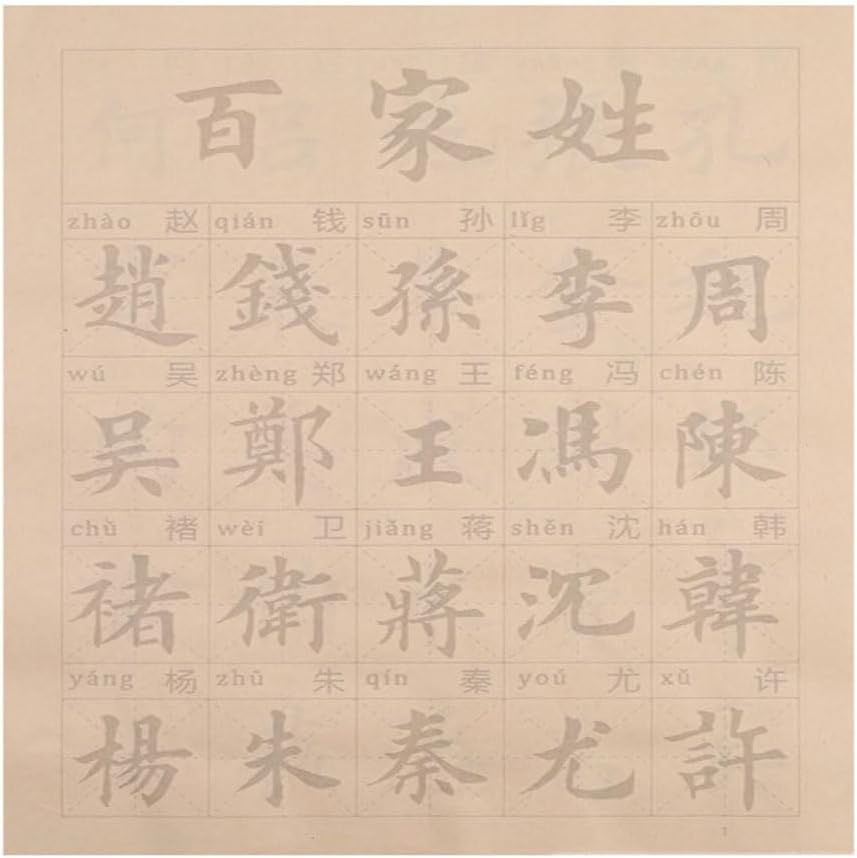 百家姓
zhào 赵 qián 钱 sūn 孙 lǐg 李 zhōu 周
趙 錢 孫 李 周
wú 吴 zhèng 郑 wáng 王 féng 冯 chén 陈
吴 鄭 王 馮 陳
chǔ 褚 wèi 卫 jiǎng 蒋 shěn 沈 hán 韩
褚 衛 蔣 沉 韓
yáng 杨 zhū 朱 qín 秦 yoú 尤 xǔ 许
楊 朱 秦 尤 許
1